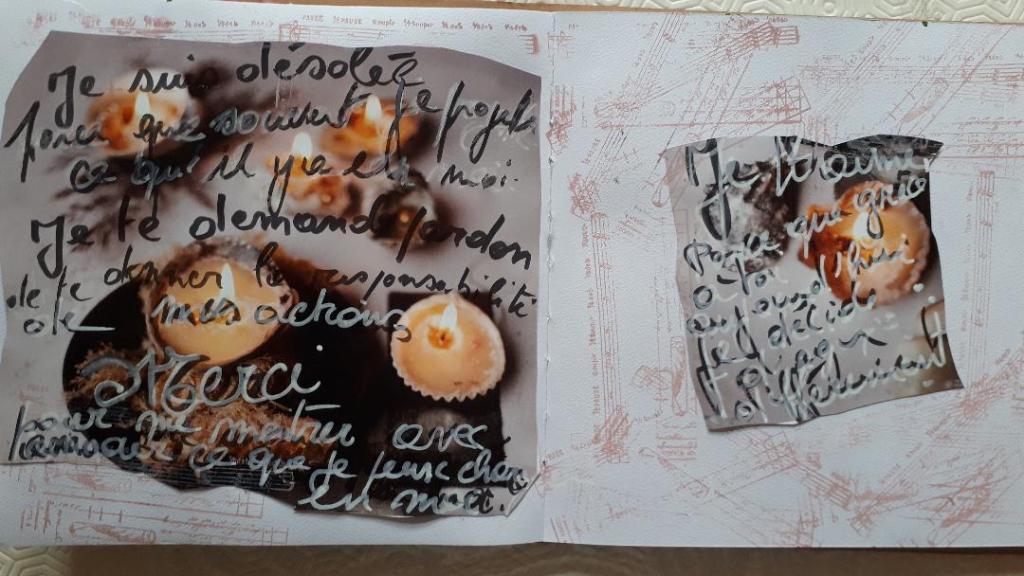 Je suis désolée
parce que souvent je projete
ce qu'il y a en moi.
Je te demand pardon
de te donner la responsabilité
de mes actions,
Merci
pour me montrer avec
amour ce que je peux chan
en moi.
Je t'aime
parce que grâce
à toi
aujourd'hui
je décide
d'agir
différemment